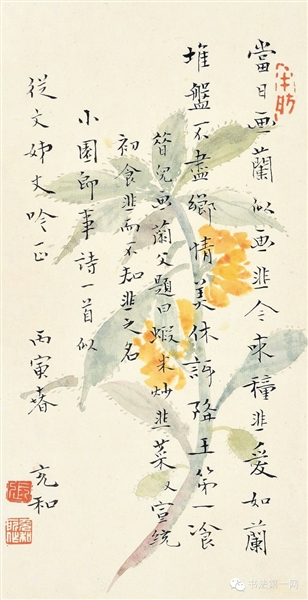 當日画蘭似画韭今來種韭愛如蘭
堆盤不盡鄉情美休訝降王第一飡
兒画蘭父題曰蝦米炒韭菜又宣統
初食韭而不知韭之名
小園即事詩一首似
從文姊丈吟正
丙寅春 充和
书法第一网